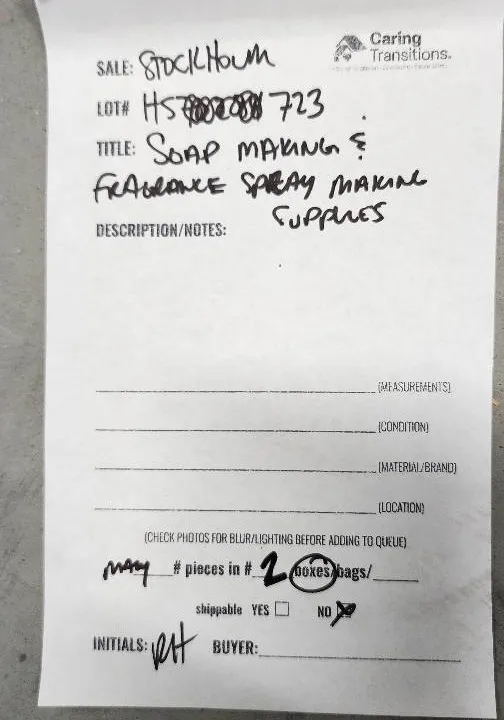 Caring
Transitions.
SALE: STOCKHOLM
LOT# HS 723
TITLE: SOAP MAKING &
FRAGRANCE SPRAY MAKING
SUPPLIES
DESCRIPTION/NOTES:
(MEASUREMENTS)
(CONDITION)
(MATERIAL/BRAND)
(LOCATION)
(CHECK PHOTOS FOR BLUR/LIGHTING BEFORE ADDING TO QUEUE)
MANY # pieces in # 2 boxes/bags/
shippable YES NO
INITIALS: BUYER: